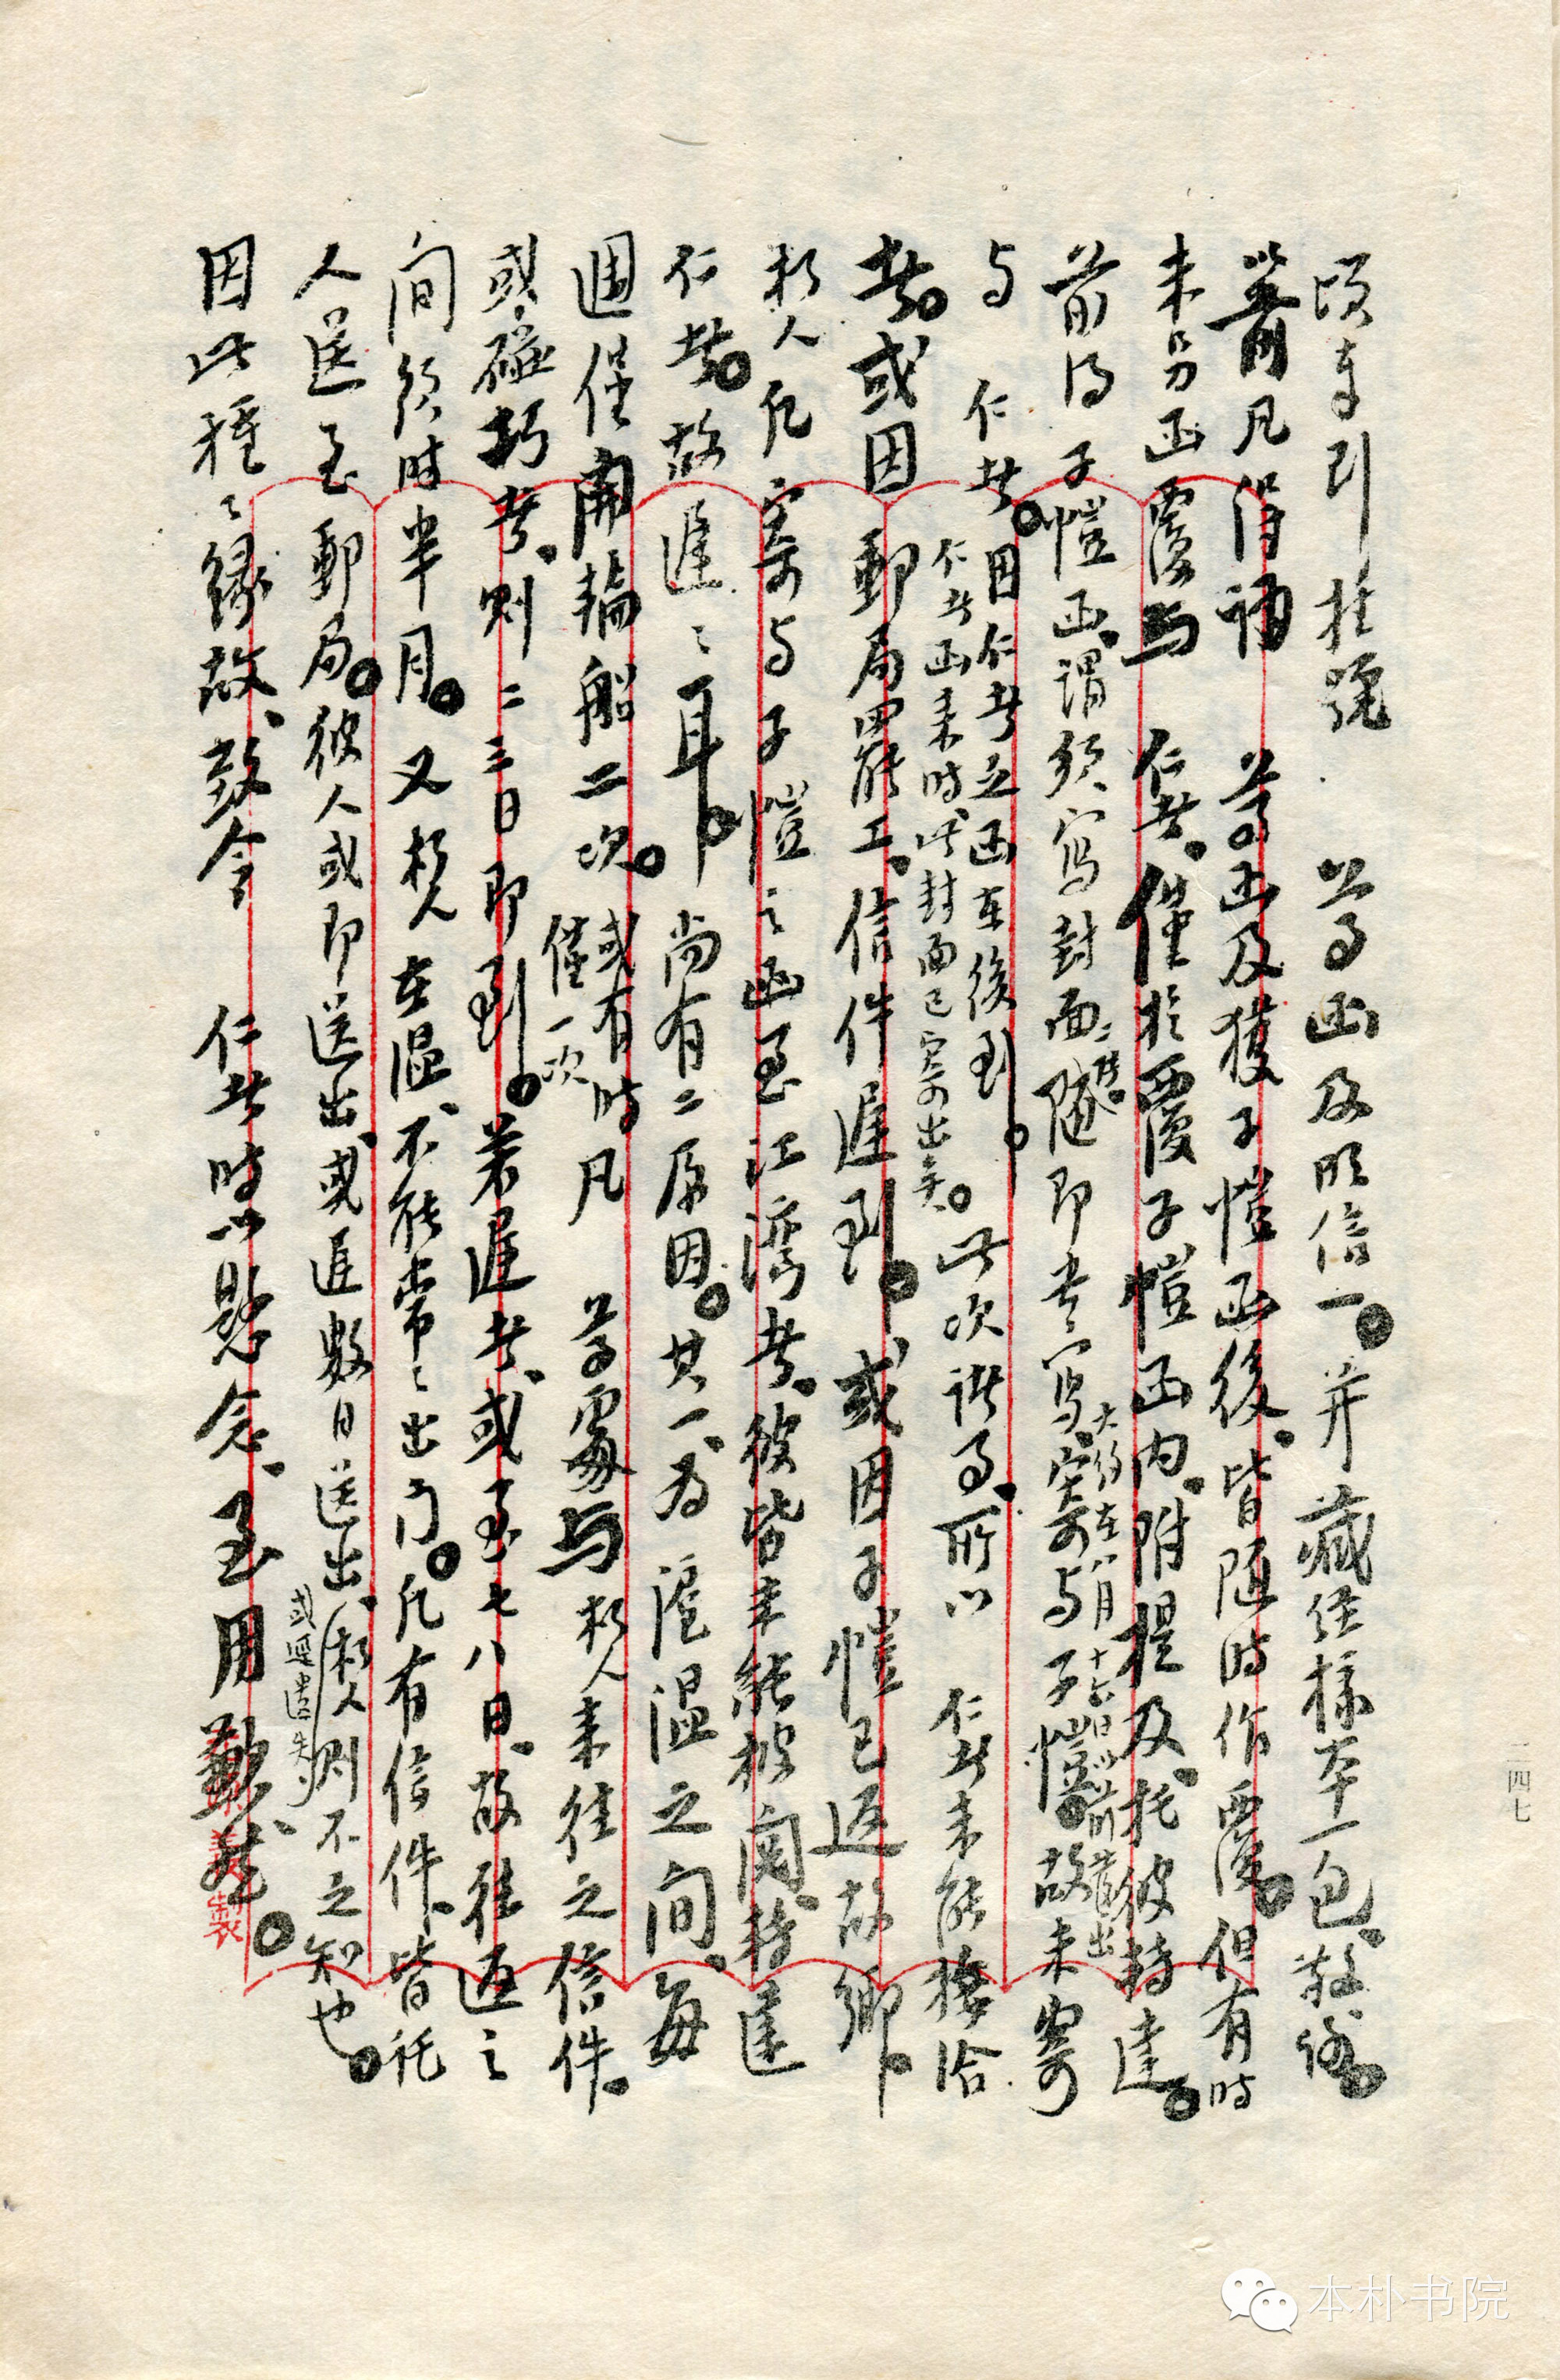 頃奉到挂號 尊函及明信一。并藏經樣本一包、敬悉。
前凡得誦 尊函及獲子愷函後、皆隨時作覆。但有時
未另函覆与 仁者、僅於覆子愷函内、附提及、托彼轉達。
前得子愷函、謂須寫封面二紙。隨即書寫、寄与子愷。故未寄
大約在八月十六日以前寄出
与 仁者。
因仁者之函在後到。
仁者函来時、此封面已寄出矣。
此次諸事、所以 仁者未能接洽
者。或因郵局罷工、信件遲到。或因子愷已返故鄉、
朽人凡寄与子愷之函至江灣者、彼皆未能披閱、轉達
仁者。故遲遲耳。尚有二原因。其一、為滬温之間、每
週僅開輪船二次。
或有時
僅一次
凡 尊處与朽人来往之信件。
或碰巧者、則二三日即到。若遲者、或至七八日、故往返之
間須時半月。又朽人在温、不能常常出門。凡有信件、皆托
人送至郵局。彼人或即送出、或遲數日送出、朽人則不之知也。
或遲遺失
因此種種緣故、致令 仁者時以懸念、至用歉然。
製
二四七
本朴书院